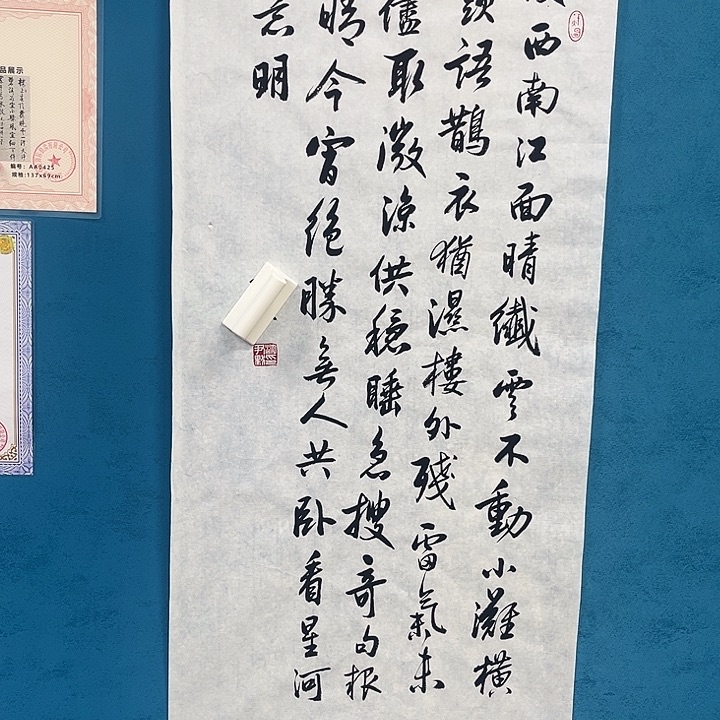 西南江面晴纖雲不動小灘橫
頭語鵲衣猶濕樓外殘雷氣未
儘取微涼供穩睡急搜奇句报
晴今宵絕勝無人共臥看星河
意明
品展示
编号：AA0425
规格:137x69cm